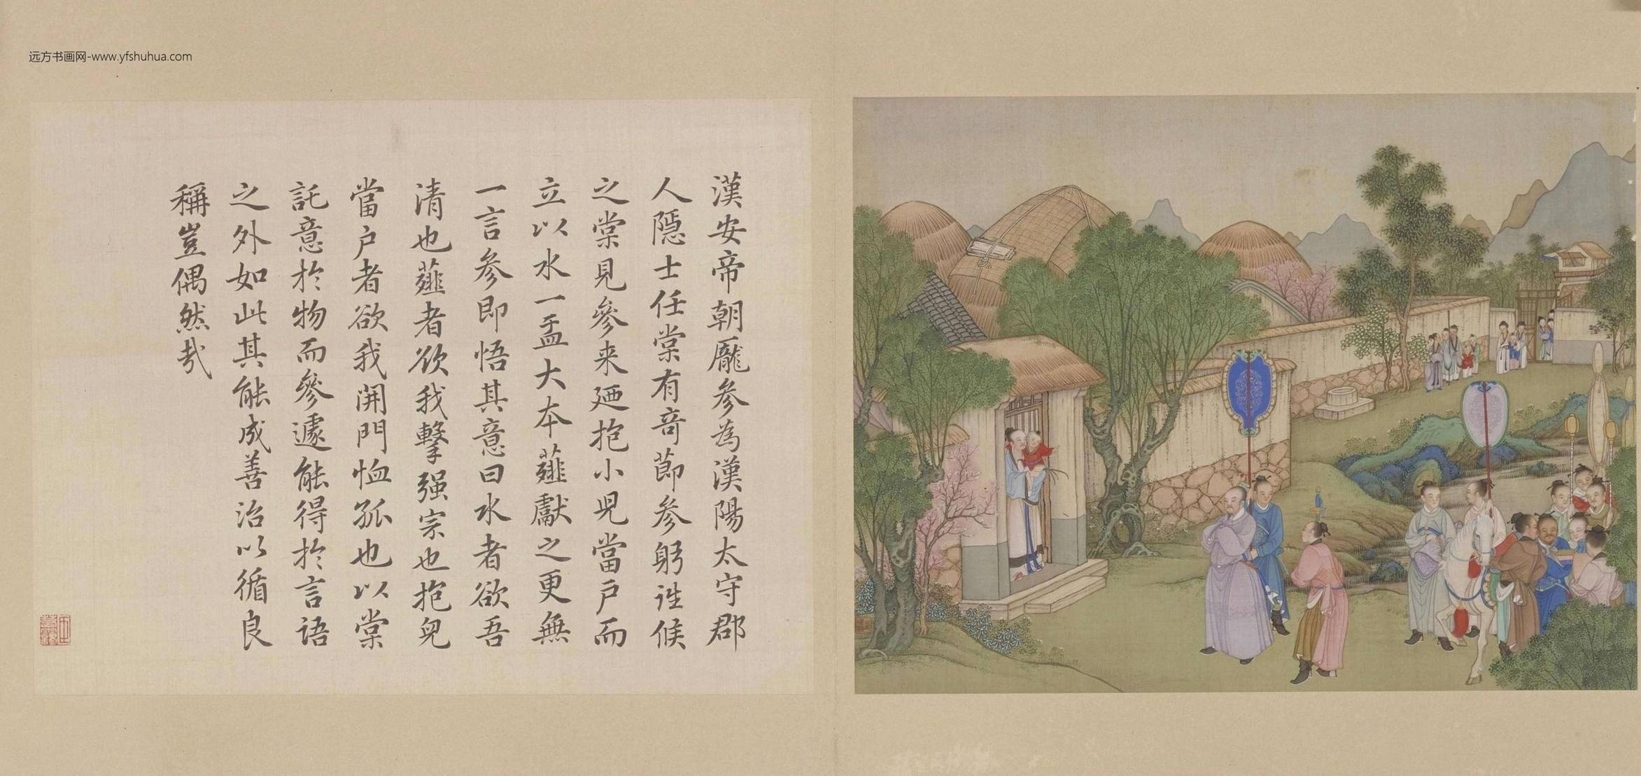 远方书画网-www.yfshuhua.com
漢安帝朝龐參為漢陽太守郡
人隱士任棠有奇節參躬詣候
之棠見參来廼抱小児當戶而
立以水一盂大本薤獻之更無
一言參即悟其意曰水者欲吾
清也薤者欲我擊强宗也抱兒
當户者欲我開門恤孤也以棠
託意於物而參遽能得於言語
之外如此其能成善治以循良
稱豈偶然哉